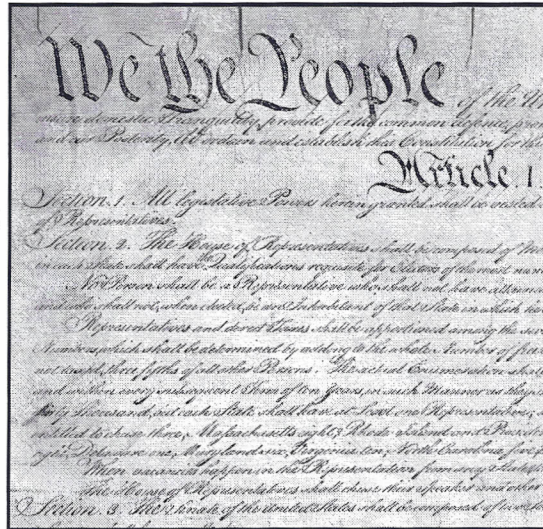 We the People of the Un
insure domestic Tranquility, provide for the common defence, prom
and our Posterity, do ordain and establish this Constitution for the
Article. I.
Section. 1. All legislative Powers herein granted shall be vested
of Representatives.
Section. 2. The House of Representatives shall be composed of Mem
in each State shall have the Qualifications requisite for Electors of the most num
No Person shall be a Representative who shall not have attained
and who shall not, when elected, be an Inhabitant of that State in which he
Representatives and direct Taxes shall be apportioned among the seve
Numbers, which shall be determined by adding to the whole Number of free
not taxed, three fifths of all other Persons. The actual Enumeration shall
and within every subsequent Term of ten Years, in such Manner as they s
thirty Thousand, but each State shall have at Least one Representative;
entitled to chuse three, Massachusetts eight, Rhode Island and Provid
eight, Delaware one, Maryland six, Virginia ten, North Carolina five,
When vacancies happen in the Representation from any State,
The House of Representatives shall chuse their Speaker and other
Section. 3. The Senate of the United States shall be composed of two